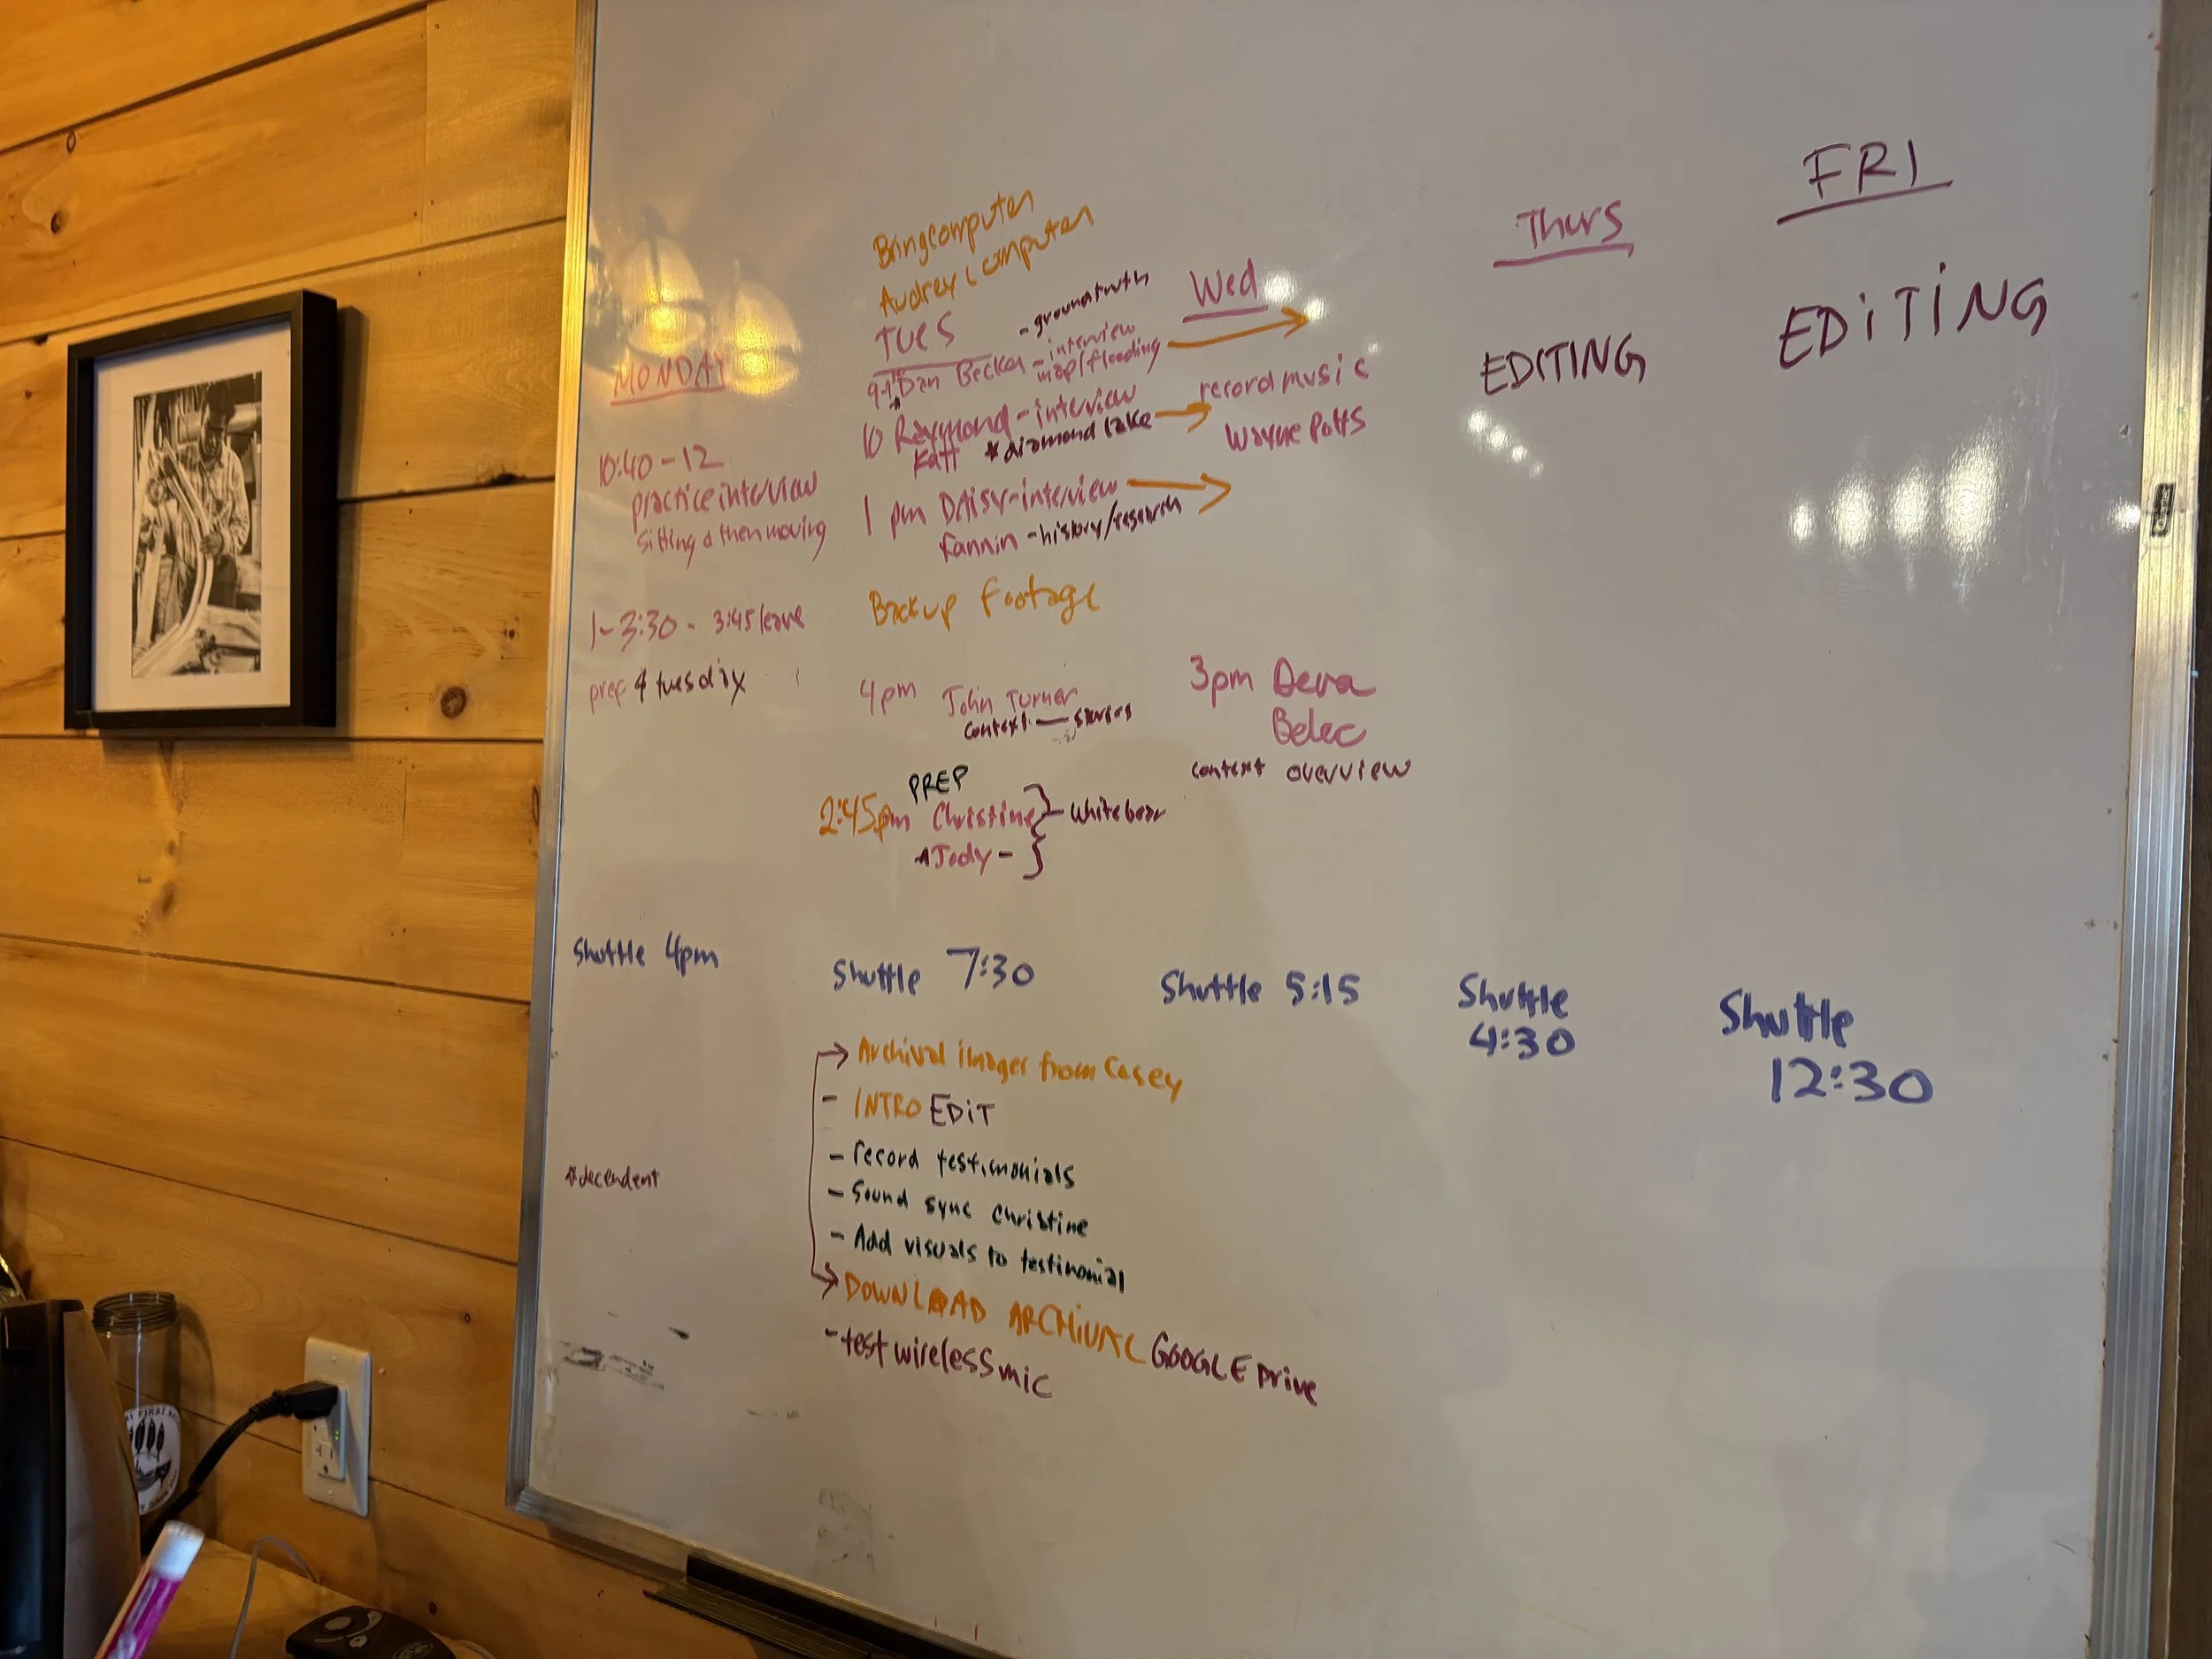 MONDAY
10:40-12
practice interview
sitting & then moving
1-3:30 - 3:45 leave
prep 4 tuesday
Shuttle 4pm
*decendent
Bring computer
Audrey computer
TUES
- groundtruth
Dan Becker - interview
map/flooding
10 Raymond - interview
Katt * diamond lake
1 pm DAisy-interview
Fannin - history/research
Backup footage
4pm John Turner
context — stories
PREP
2:45pm Christine } - Whitebear
Jody - }
Shuttle 7:30
Archival images from Casey
- INTRO EDiT
- record testimonials
- Sound sync Christine
- Add visuals to testimonial
DOWNLOAD ARCHiVAL GOOGLE Drive
- test wireless mic
Wed
record music
Wayne Potts
3pm Deva
Belec
context overview
Shuttle 5:15
Thurs
EDITING
Shuttle
4:30
FRI
EDiTiNG
Shuttle
12:30